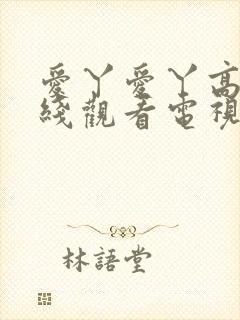 愛丫愛丫高
綫觀看電視
林語堂